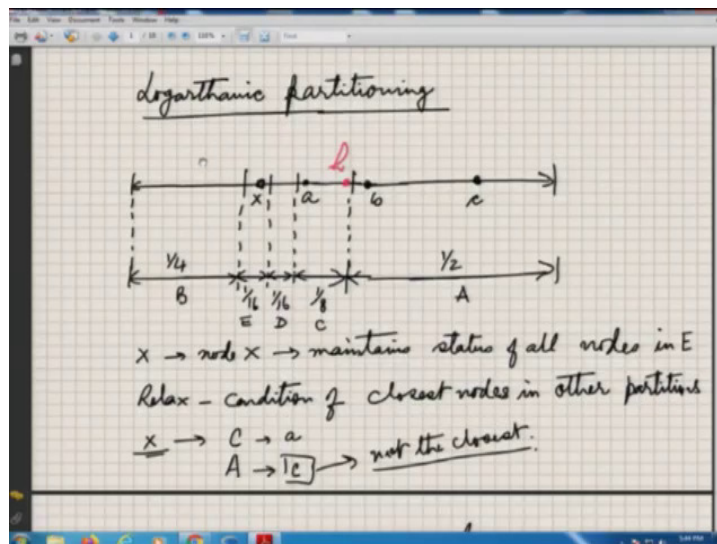 File Edit View Document Tools Window Help
1 / 18
Logarthamic partitioning
h
x a b c
1/4 1/16 1/16 1/8 1/2
B E D C A
x → node x → maintains status of all nodes in E
Relax - condition of closest nodes in other partitions
x → C → a
A → c → not the closest.